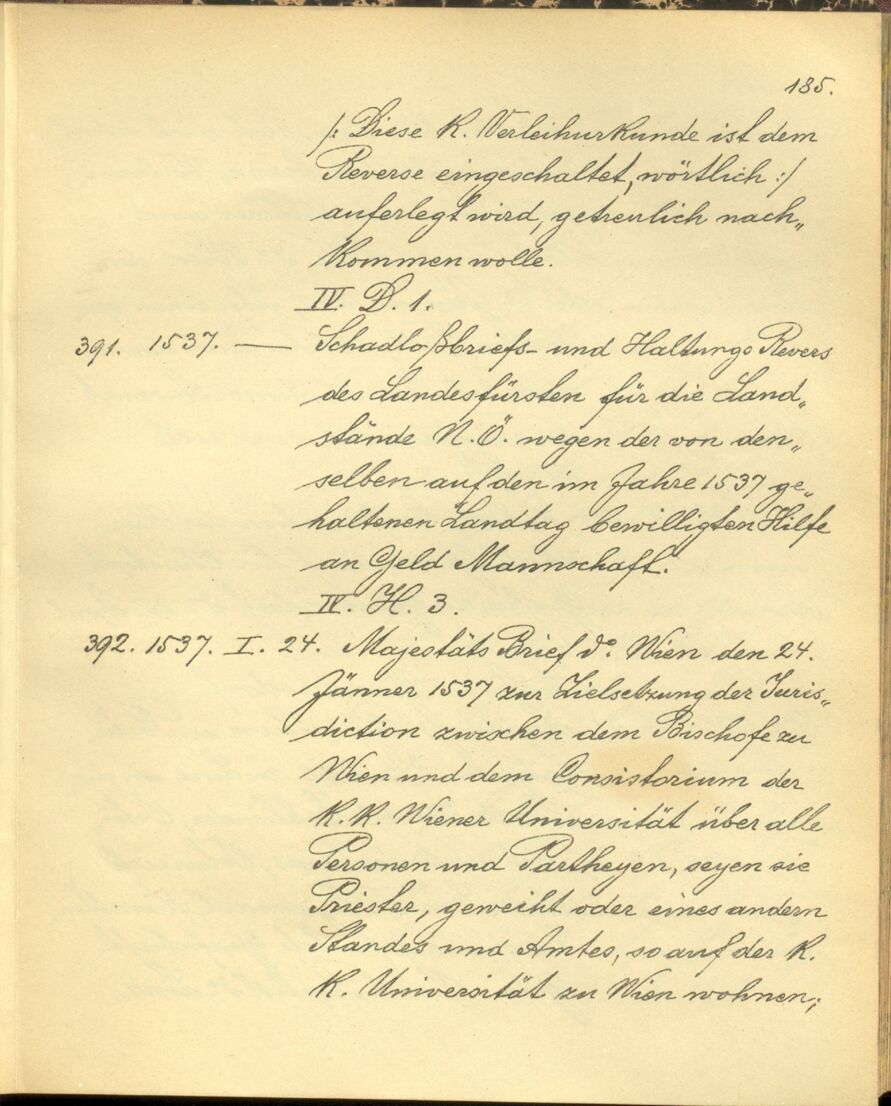 185.
/: Diese K. Verleihurkunde ist dem
Reverse eingeschaltet, wörtlich :/
auferlegt wird, getreulich nach„
kommen wolle.
IV. D. 1.
391. 1537. — Schadloßbriefs- und Haltungs Revers
des Landesfürsten für die Land„
stände N. Ö. wegen der von den„
selben auf den im Jahre 1537 ge„
haltenen Landtag bewilligten Hilfe
an Geld Mannschaft.
IV. H. 3.
392. 1537. I. 24. Majestäts Brief do. Wien den 24.
Jänner 1537 zur Zielsetzung der Juris„
diction zwischen dem Bischofe zu
Wien und dem Consistorium der
K. K. Wiener Universität über alle
Personen und Partheyen, seyen sie
Priester, geweiht oder eines andern
Standes und Amtes, so auf der K.
K. Universität zu Wien wohnen;